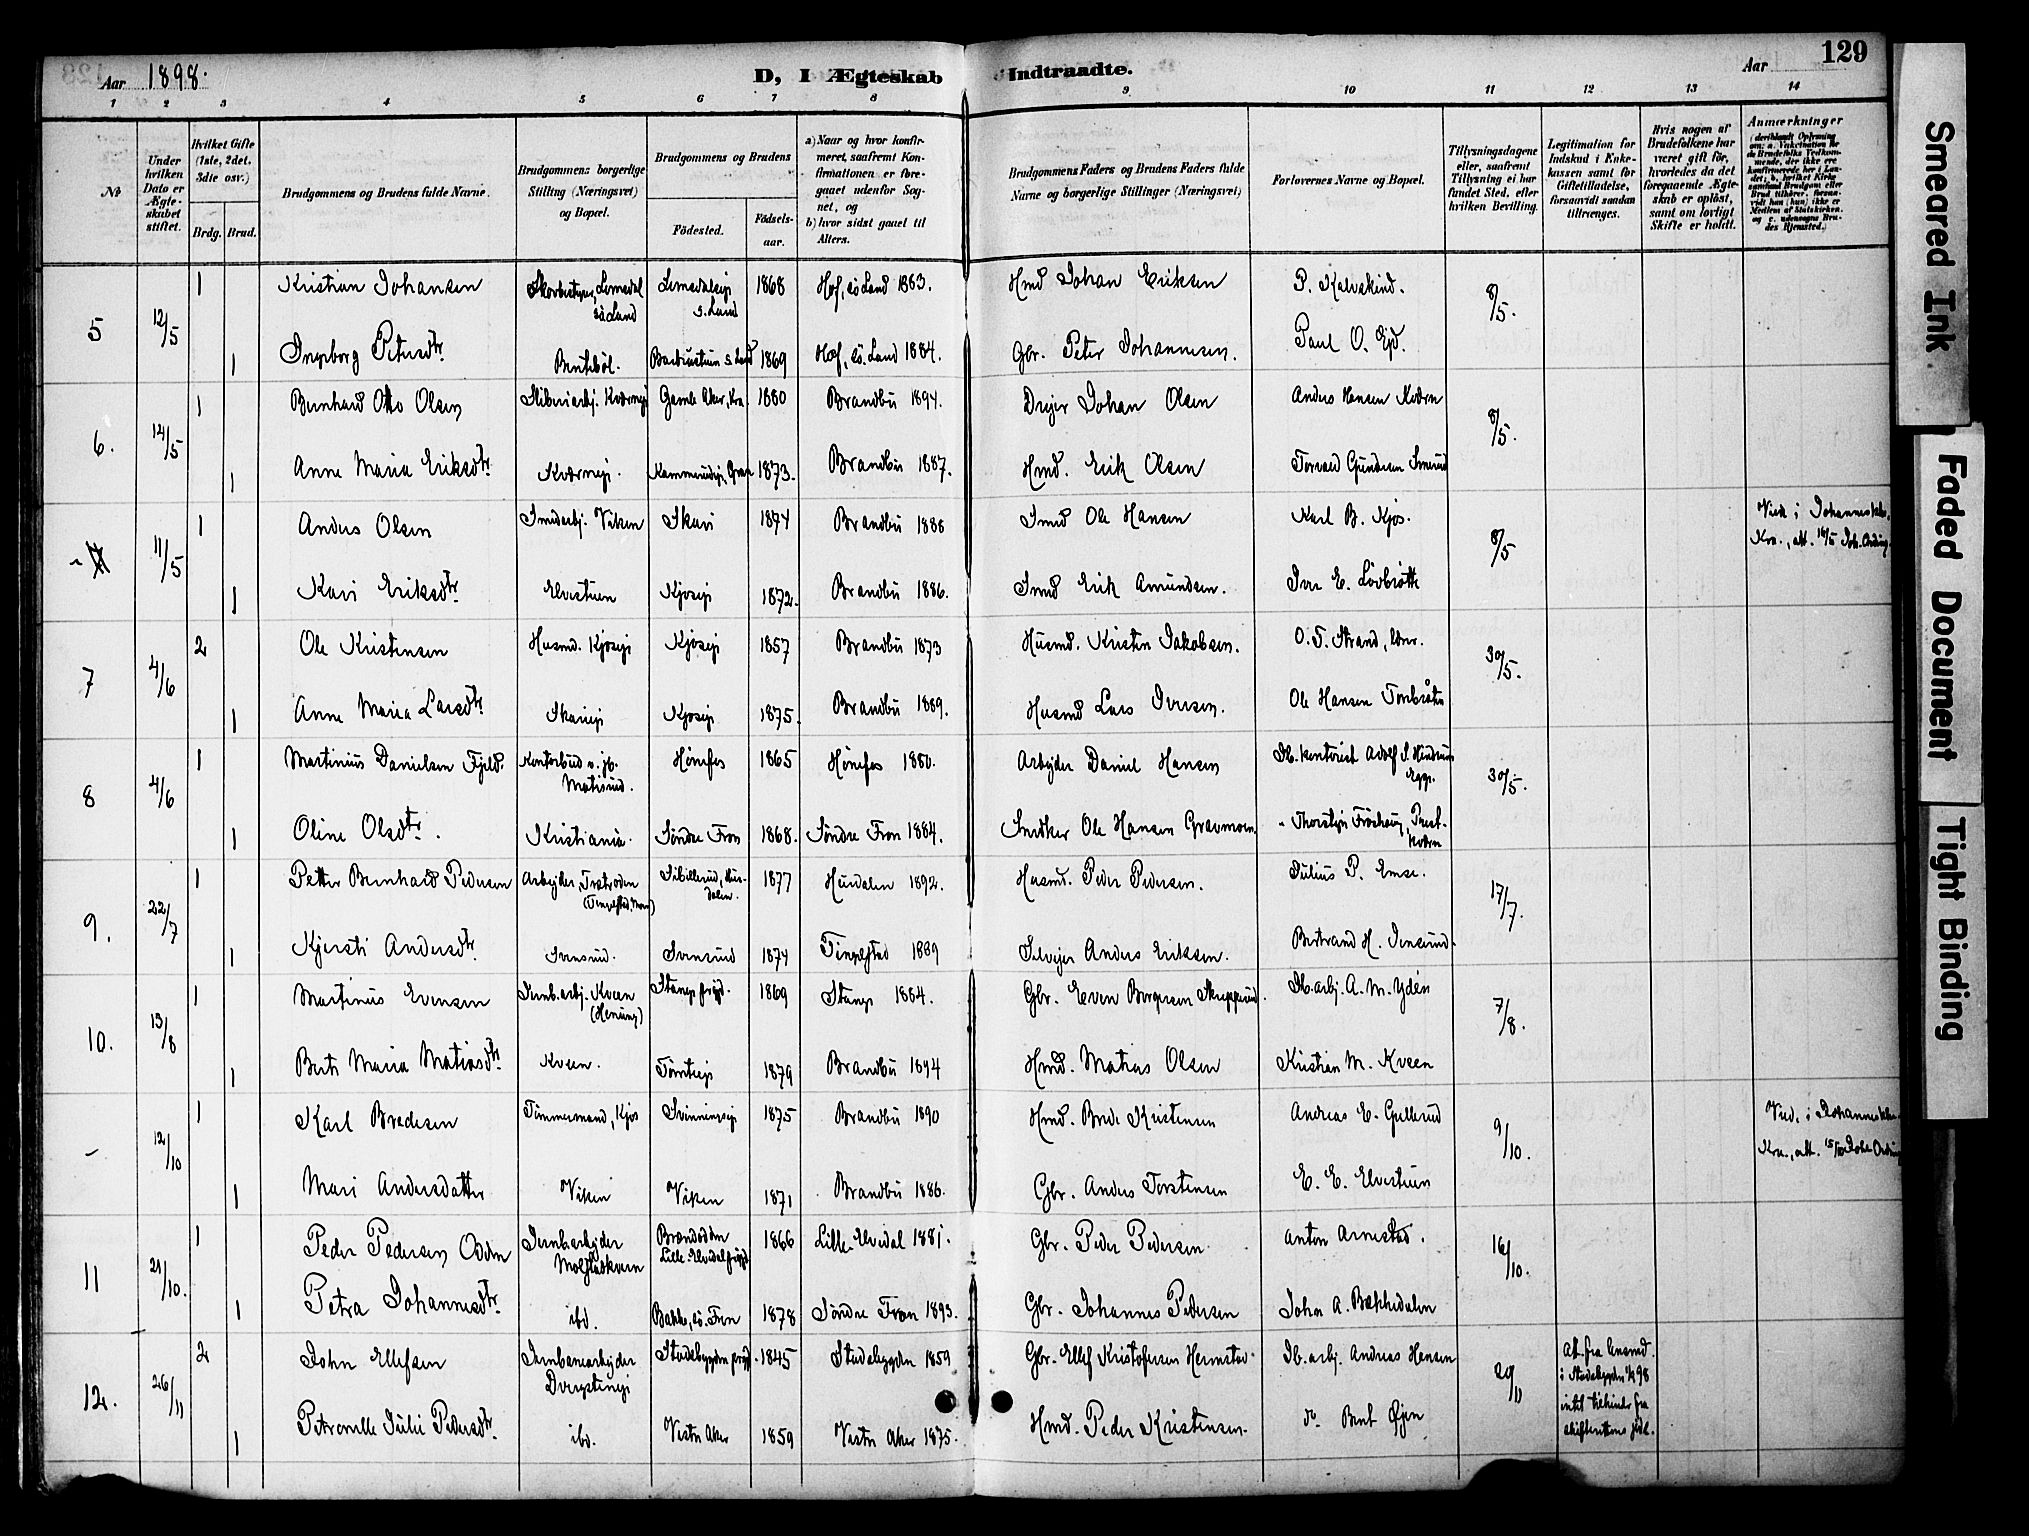 Aar 1898.
D, I Ægteskab Indtraadte.
Aar
129
1 2 3 4 5 6 7 8 9 10 11 12 13 14
No
Under hvilken Dato er Ægteskabet stiftet.
Hvilket Gifte (1ste, 2det, 3die osv.)
Brdg. Brud.
Brudgommens og Brudens fulde Navne.
Brudgommens borgerlige Stilling (Næringsvei) og Bopæl.
Brudgommens og Brudens
Födested. Födselsaar.
a) Naar og hvor konfirmeret, saafremt Konfirmationen er foregaaet udenfor Sognet, og
b) hvor sidst gaaet til Alters.
Brudgommens Faders og Brudens Faders fulde Navne og borgerlige Stillinger (Næringsvei)
Forlovernes Navne og Bopæl.
Tillysningsdagene eller, saafremt Tillysning ei har fundet Sted, efter hvilken Bevilling.
Legitimation for Indskud i Enkekassen samt for Giftetilladelse, forsaavidt saadan tiltrænges.
Hvis nogen af Brudefolkene har været gift för, hvorledes da det foregaaende Ægteskab er oplöst, samt om lovligt Skifte er holdt.
Anmerkninger
5 12/5 1 Kristian Johansen Lomsdal sö Land Lomsdalseje S. Land 1868 Hof, sö Land 1883. Hmd Johan Eriksen P. Kalvskind. 8/5.
1 Ingeborg Petersdtr. Bentsböl. S. Land 1869 Hof, sö. Land 1884. Gbr. Peter Johannesen. Paul O. Ejd.
6. 14/5 1 Bernhard Otto Olsen Sliberiarbj. Kværnej Gamle Aker, Kra 1880 Brandbu 1894. Drejer Johan Olsen Anders Hansen Kværn 8/5.
1 Anne Maria Eriksdtr. Kværnej. Gran 1873. Brandbu 1887. Hmd. Erik Olsen Torvald Gundersen Smerud
11/5 1 Anders Olsen Smedarbj. Viken Skari 1874 Brandbu 1888 Smed Ole Hansen Karl B. Kjos. 8/5 Viet i Johanneskke. Kra., att.
1 Kari Eriksdtr. Elvestuen Kjosej 1872. Brandbu 1886. Smed Erik Amundsen. Iver E. Lövbråtte
7 4/6 2 Ole Kristensen Husmd. Kjosej Kjosej 1857 Brandbu 1873 Husmd. Kristen Jakobsen. O. T. Strand, lærer. 30/5.
1 Anne Maria Larsdtr. Skariej Kjosej 1875. Brandbu 1889. Husmd Lars Iversen. Ole Hansen
8 4/6 1 Martinius Danielsen Fjeld. Kontorbud v. jb. Hönefos 1865 Hönefos 1880. Arbejder Daniel Hansen Jb. kontorist Adolf S. 30/5.
1 Oline Olsdtr. Kristiania. Söndre Fron 1868. Söndre Fron 1884. Snedker Ole Hansen Gravmoen. Thorstejn Fröshaug,
9. 22/7 1 Petter Bernhard Pedersen Arbejder, 1877 Hurdalen 1892. Husmd. Peder Pedersen. Julius P. Emse. 17/7.
1 Kjersti Andersdtr. Svensrud. Svensrud 1874 Tingelstad 1889 Selvejer Anders Eriksen. Bertrand H.
10. 13/8 1 Martinus Evensen Jernb.arbj. Kveen Stange prgd. 1869 Stange 1884. Gbr. Even Borgersen Jb.arbj. A. M. Ydén 7/8.
1 Berte Maria Matiasdtr. Kveen. 1879 Brandbu 1894 Hmd. Matias Olsen Kristian M. Kveen
- 12/10 1 Karl Bredesen Tömmermand, Kjos Svinningsej 1875 Brandbu 1890 Hmd. Brede Kristensen Andreas E. Gullerud 9/10. Vied. i Johanneskke. Kra., att.
1 Mari Andersdatter Viken Viken 1871 Brandbu 1886. Gbr. Anders Torstensen E. E. Elvestuen
11 21/10. 1 Peder Pedersen Odden Jernb.arbejder Lille-Elvedal prgd 1866 Lille-Elvedal 1881. Gbr. Peder Pedersen Anton Arnestad. 16/10.
1 Petra Johannesdtr. ibd. Bakke, sö. Fron 1878 Söndre Fron 1893. Gbr. Johannes Pedersen John A. Bækkedalen
12. 26/11 2 John Ellefsen Jernbanearbejder Stadsbygden prgd. 1845 Stadsbygden 1859 Gbr. Ellef Kristofersen Hermstad Jb. arbj. Andreas Hansen 20/11 Att. fra lensmd. i Stadsbygden 98 intet tilhinder fra skifterettens side.
1 Petronelle Julie Pedersdtr. ibd. Vestre Aker 1859 Vestre Aker 1875. Hmd. Peder Kristensen. do. Bent Öjen
Smeared Ink
Faded Document
Tight Binding